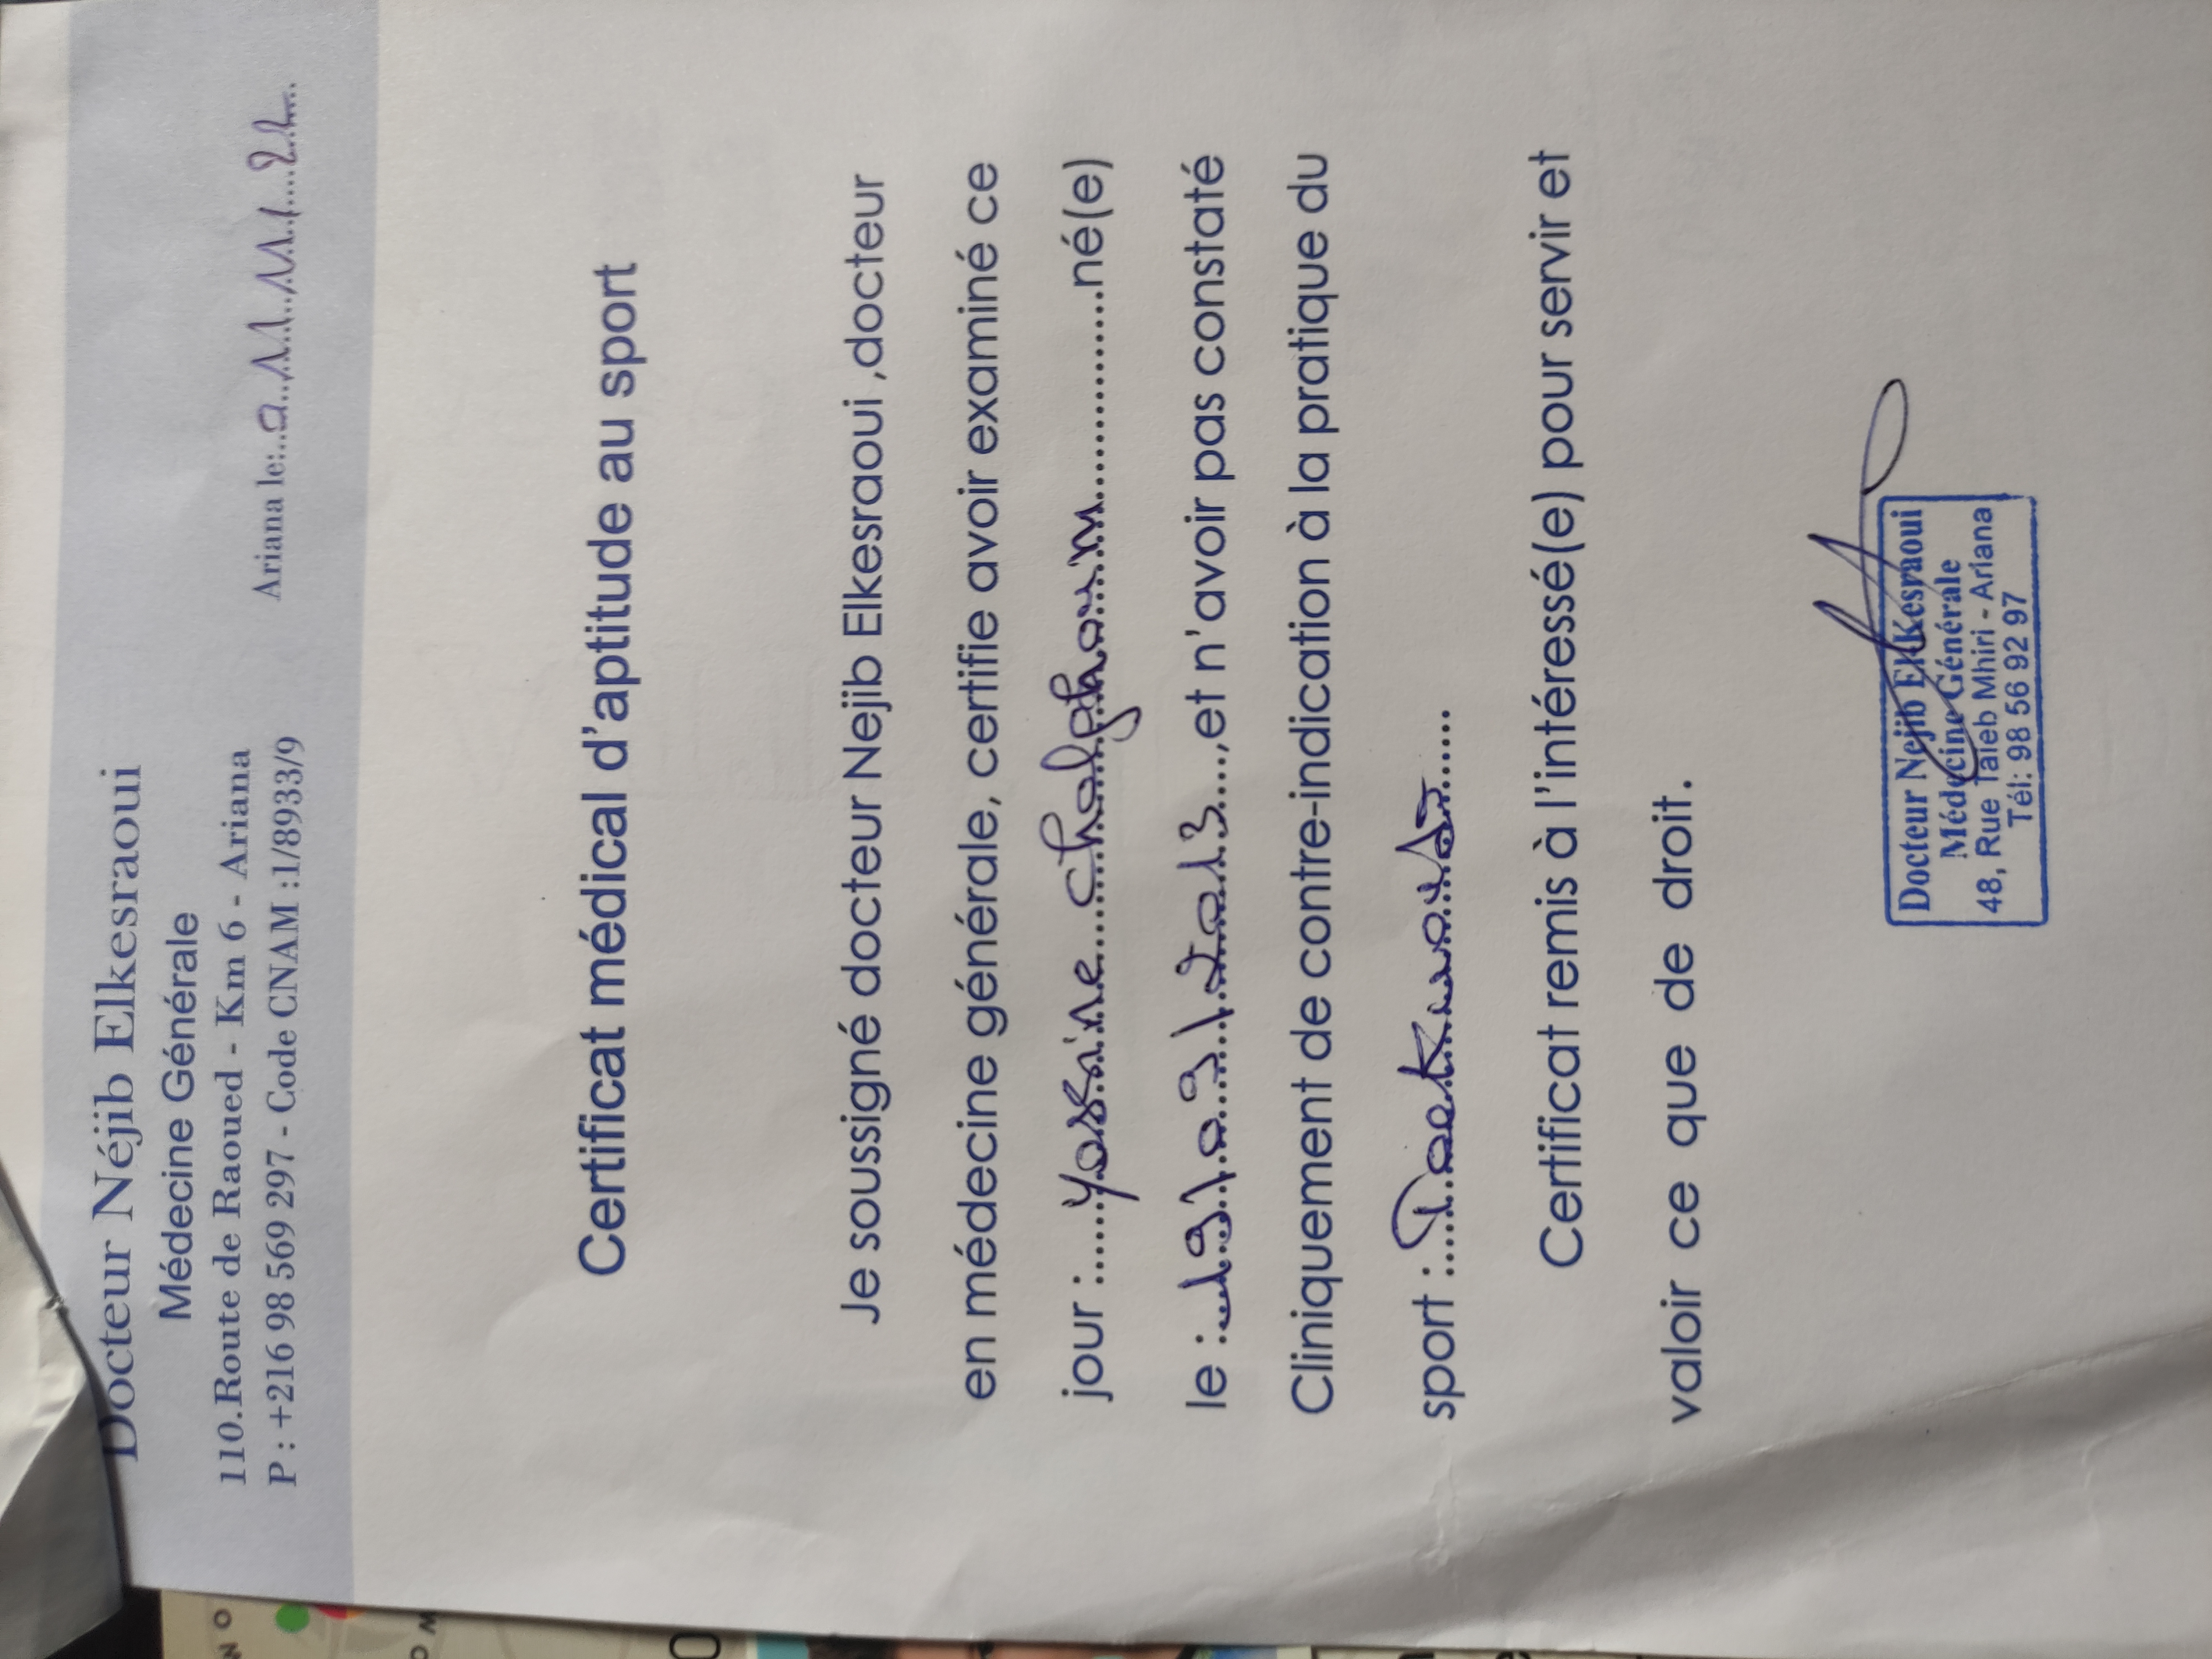 Docteur Néjib Elkesraoui
Médecine Générale
110.Route de Raoued - Km 6 - Ariana
P : +216 98 569 297 - Code CNAM :1/8933/9
Ariana le:
Certificat médical d'aptitude au sport
Je soussigné docteur Nejib Elkesraoui ,docteur
en médecine générale, certifie avoir examiné ce
jour : Yassine Chalghoum né(e)
le : 19/09/2013 ,et n'avoir pas constaté
Cliniquement de contre-indication à la pratique du
sport : Taekwondo
Certificat remis à l'intéressé(e) pour servir et
valoir ce que de droit.
Docteur Nejib El Kesraoui
Médecine Générale
48, Rue Taieb Mhiri - Ariana
Tél: 98 56 92 97